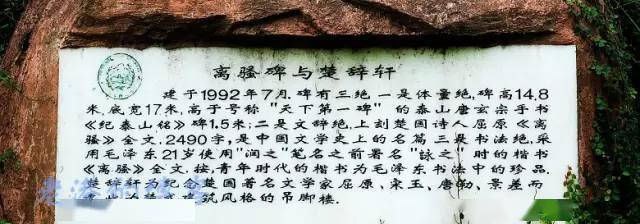 离骚碑与楚辞轩
建于1992年7月.碑有三绝,一是体量绝,碑高14.8
米,底宽17米,高于号称"天下第一碑"的泰山唐玄宗手书
《纪泰山铭》碑1.5米;二是文辞绝,上刻楚国诗人屈原《离
骚》全文,2490字,是中国文学史上的名篇.三是书法绝,采
用毛泽东21岁使用"润之"笔名之前署名"咏之"时的楷书
《离骚》全文.按,青年时代的楷书为毛泽东书法中的珍品.
楚辞轩为纪念楚国著名文学家屈原、宋玉、唐勒、景差而
建筑风格的吊脚楼.